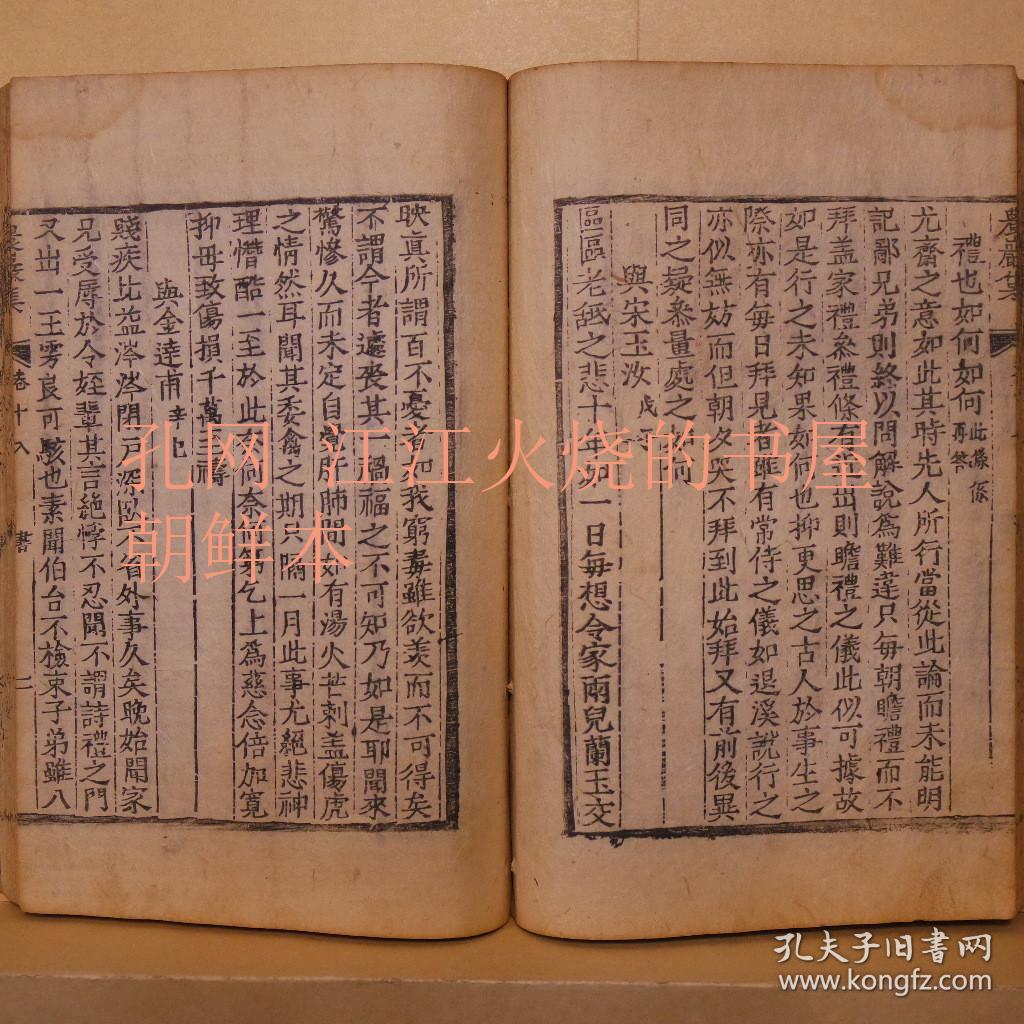 農巖集
禮也如何如何此條係再答
尤齋之意如此其時先人所行當從此論而未能明
記鄙兄弟則終以問解說爲難違只每朝瞻禮而不
拜盖家禮叅禮條有至出則瞻禮之儀此似可據故
如是行之未知果如何也抑更思之古人於事生之
際亦有每日拜見者雖有常侍之儀如退溪說行之
亦似無妨而但朝夕哭不拜到此始拜又有前後異
同之疑叅量處之如何
與宋玉汝戊
區區老舐之悲十年如一日每想令家兩兒蘭玉交
映眞所謂百不憂者如我窮毒雖欲羡而不可得矣
不謂今者遽喪其一禍福之不可知乃如是耶聞來
驚慘久而未定自覺肝肺間如有湯火芒刺盖傷虎
之情然耳聞其委禽之期只隔一月此事尤絕悲神
理憯酷一至於此奈何奈何第乞上爲慈念倍加寬
抑毋致傷損千萬禱
與金達甫辛巳
賤疾比益涔涔閉戶深臥不省外事久矣晚始聞家
兄受辱於令姪輩其言絕悖不忍聞不謂詩禮之門
又出一王雱良可駭也素聞伯台不檢束子弟雖八
農巖集 卷十八 書 二
孔网 江江火烧的书屋
朝鲜本
孔夫子旧书网
www.kongfz.com